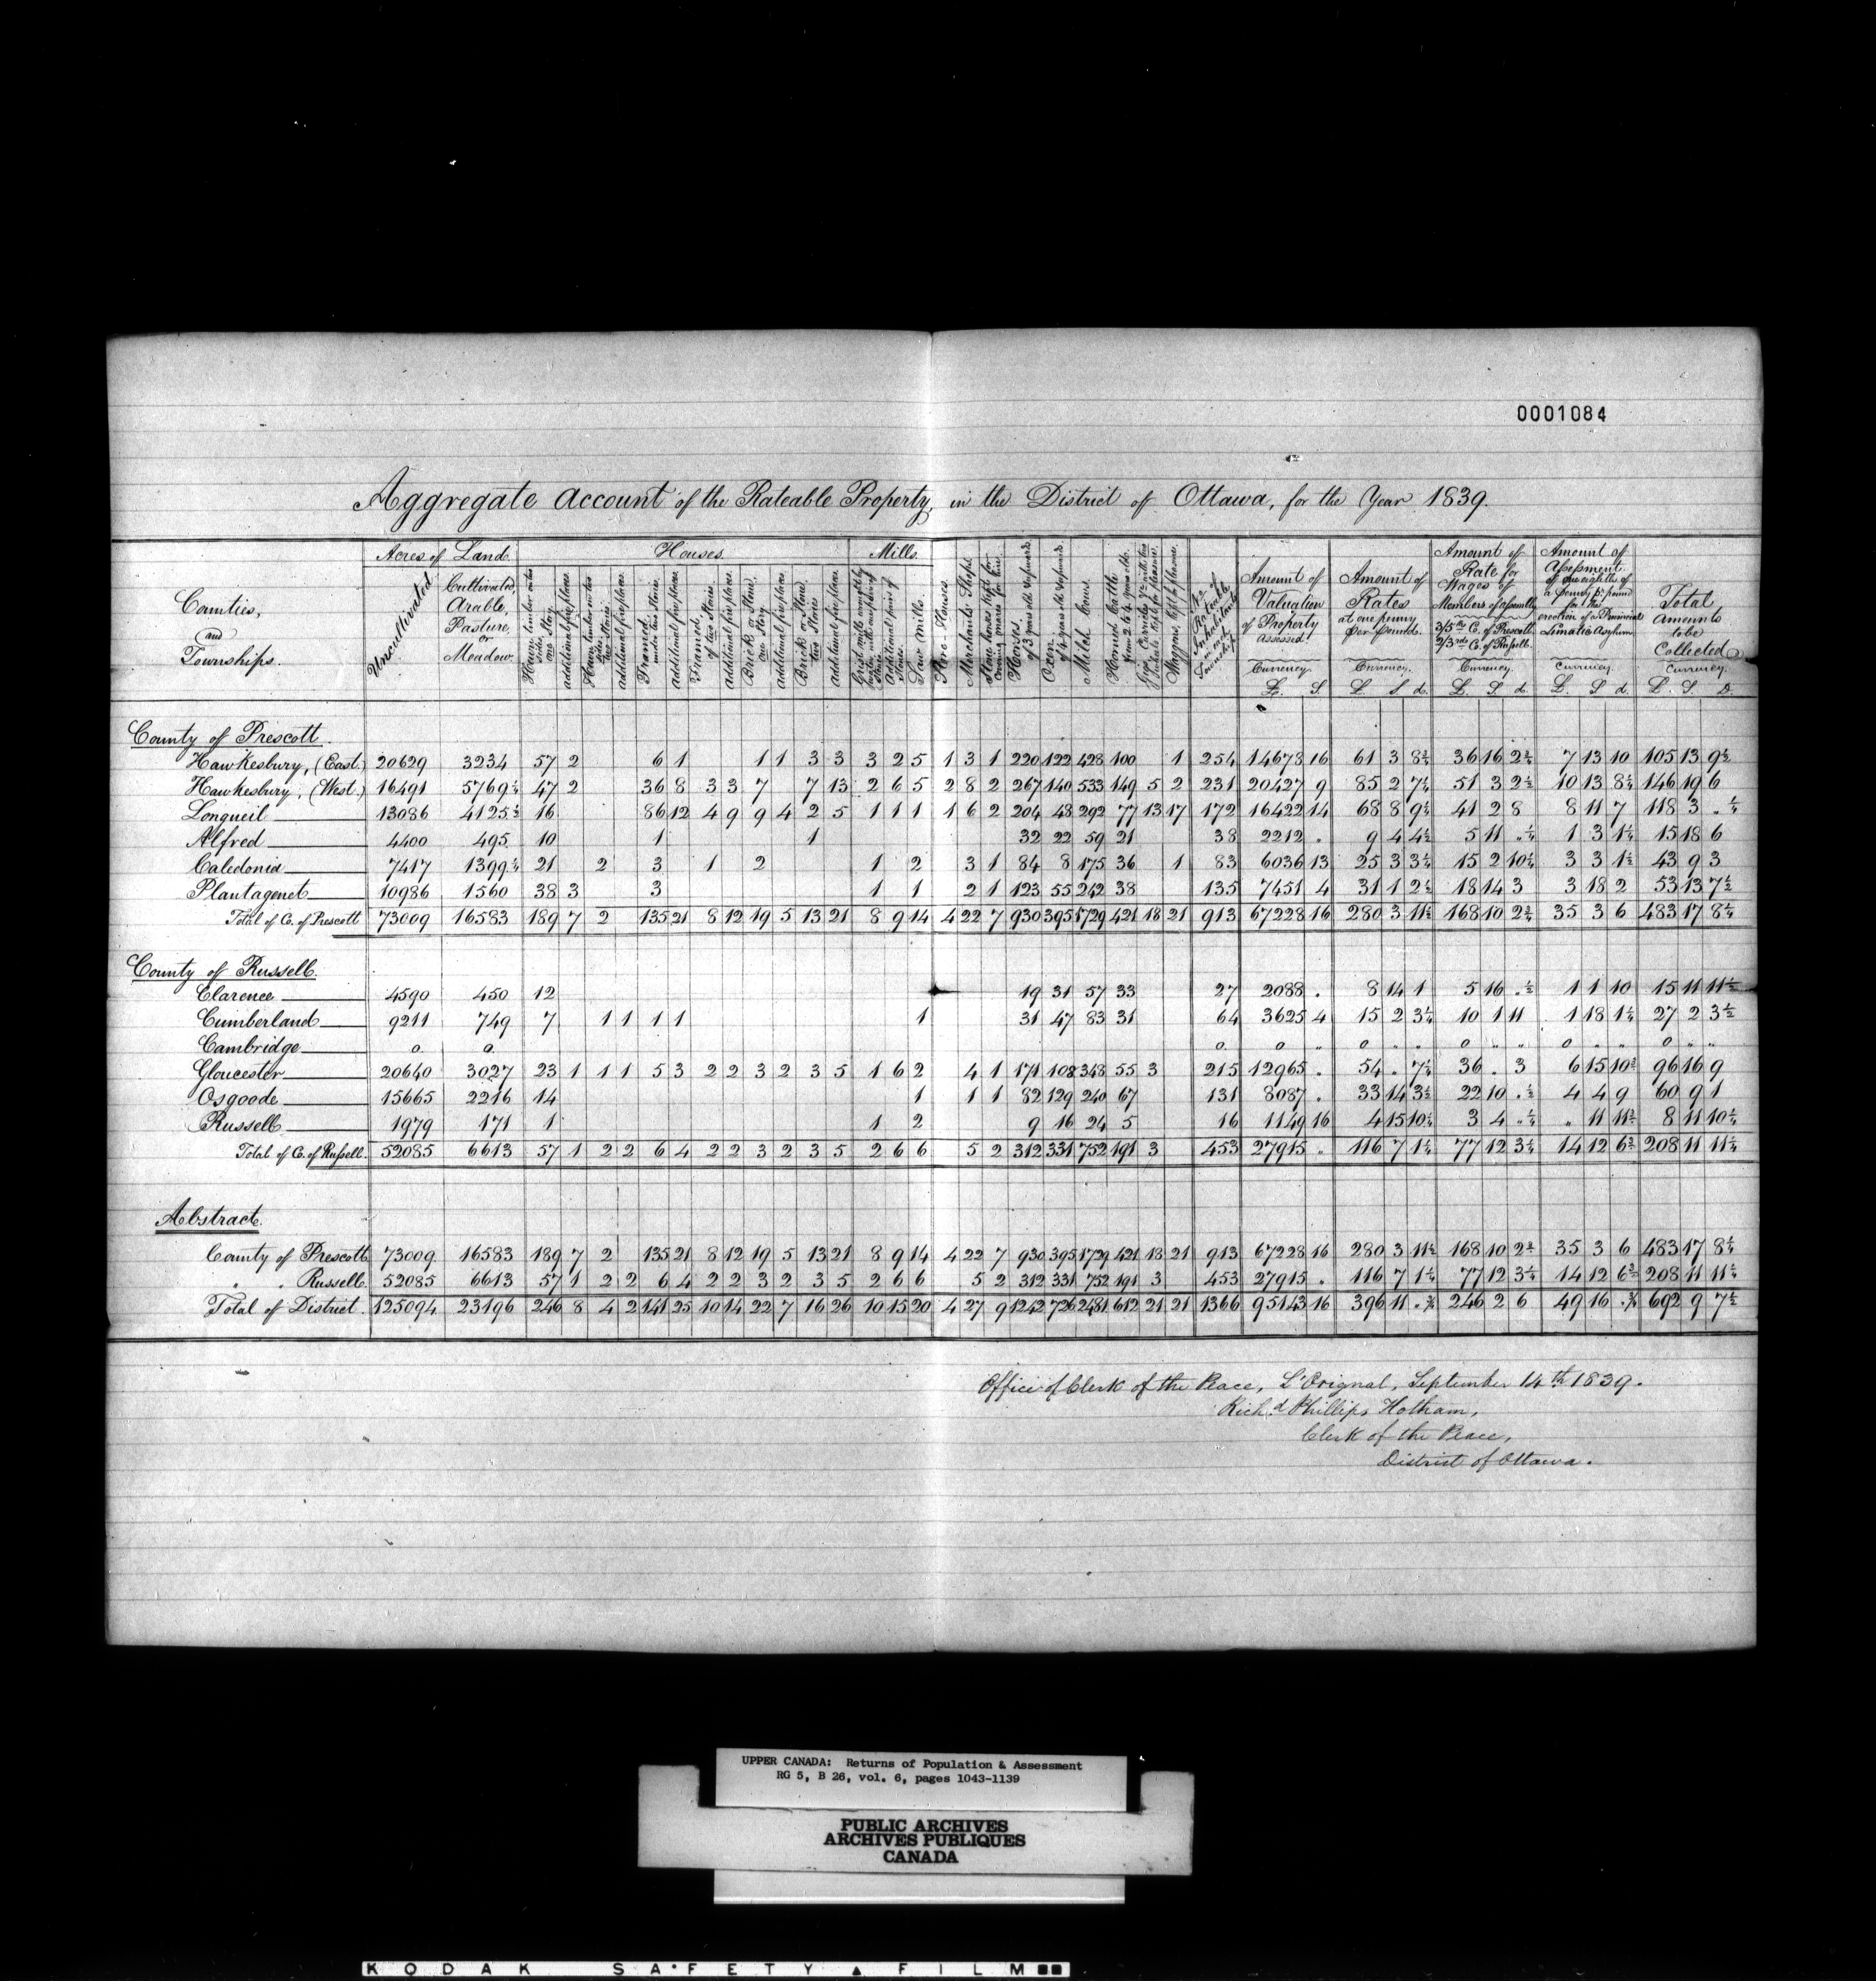 0001084
Aggregate Account of the Rateable Property, in the District of Ottawa, for the Year 1839.
Counties, and Townships. | Acres of Land | Houses. | Mills.
Uncultivated | Cultivated, Arable, Pasture, or Meadow. | Hewn timber on two sides, one Story | additional fire places | Hewn timber on two sides, two Stories | additional fire places. | Framed, under two Stories. | additional fire places. | Framed, of two Stories | additional fire places. | Brick or Stone, one Story. | additional fire places. | Brick or Stone, two Stories | additional fire places. | Additional pairs of Stones. | Saw Mills | Store-Houses. | Merchants Shops. | Stone horses kept for covering mares for hire. | Horses, of 3 years old & upwards. | Oxen, of 4 years old & upwards. | Milch Cows. | Horned Cattle from 2 to 4 years old. | Waggons, kept for pleasure. | No. of Rateable Inhabitants in each Township. | Amount of Valuation of Property assessed. Currency. £. S. | Amount of Rates at one penny per Pound. Currency. £ S d. | Amount of Rate for Wages of Members of Assembly 3/5ths Co. of Prescott 2/3rds Co. of Russell. Currency. £. S d. | Amount of Assessment of one eighth of a Penny pr. pound for the erection of a Provincial Lunatic Asylum Currency. £. S d. | Total Amount to be Collected Currency. £. S. D.
County of Prescott.
Hawkesbury, (East.) 20629 3234 57 2 6 1 1 1 3 3 3 2 5 1 3 1 220 122 428 100 1 254 14678 16 61 3 8¾ 36 16 2¾ 7 13 10 105 13 9½
Hawkesbury, (West.) 16491 5769¼ 47 2 36 8 3 3 7 7 13 2 6 5 2 8 2 267 140 533 149 5 2 231 20427 9 85 2 7¼ 51 3 2½ 10 13 8¼ 146 19 6
Longueil 13086 4125½ 16 86 12 4 9 9 4 2 5 1 1 1 1 6 2 204 48 292 77 13 17 172 16422 14 68 8 9½ 41 2 8 8 11 7 118 3 . ¼
Alfred 4400 495 10 1 1 32 22 59 21 38 2212 . 9 4 4½ 5 11 . ¼ 1 3 1¼ 15 18 6
Caledonia 7417 1399¼ 21 2 3 1 2 1 2 3 1 84 8 175 36 1 83 6036 13 25 3 3¼ 15 2 10¼ 3 3 1½ 43 9 3
Plantagenet 10986 1560 38 3 3 1 1 2 1 123 55 242 38 135 7451 4 31 1 2½ 18 14 3 3 18 2 53 13 7½
Total of Co. of Prescott 73009 16583 189 7 2 135 21 8 12 19 5 13 21 8 9 14 4 22 7 930 395 1729 421 18 21 913 67228 16 280 3 11½ 168 10 2¾ 35 3 6 483 17 8¼
County of Russell.
Clarence 4590 450 12 19 31 57 33 27 2088 . 8 14 1 5 16 . ½ 1 1 10 15 11 11½
Cumberland 9211 749 7 1 1 1 1 1 31 47 83 31 64 3625 4 15 2 3¼ 10 1 11 1 18 1¼ 27 2 3½
Cambridge o. o. o. o „ o „ „ o „ „ o „ „ o „ „
Gloucester 20640 3027 23 1 1 1 5 3 2 2 3 2 3 5 1 6 2 4 1 171 108 348 55 3 215 12965 . 54 . 7¼ 36 . 3 6 15 10¾ 96 16 9
Osgoode 15665 2216 14 1 1 1 82 129 240 67 131 8087 . 33 14 3½ 22 10 . ½ 4 4 9 60 9 1
Russell 1979 171 1 1 2 9 16 24 5 16 1149 16 4 15 10¼ 3 4 . ¼ „ 11 11¾ 8 11 10¼
Total of Co. of Russell. 52085 6613 57 1 2 2 6 4 2 2 3 2 3 5 2 6 6 5 2 312 331 752 191 3 453 27915 „ 116 7 1¼ 77 12 3¼ 14 12 6¾ 208 11 11¼
Abstract.
County of Prescott 73009 16583 189 7 2 135 21 8 12 19 5 13 21 8 9 14 4 22 7 930 395 1729 421 18 21 913 67228 16 280 3 11½ 168 10 2¾ 35 3 6 483 17 8¼
„ „ Russell. 52085 6613 57 1 2 2 6 4 2 2 3 2 3 5 2 6 6 5 2 312 331 752 191 3 453 27915 . 116 7 1¼ 77 12 3¼ 14 12 6¾ 208 11 11¼
Total of District. 125094 23196 246 8 4 2 141 25 10 14 22 7 16 26 10 15 20 4 27 9 1242 726 2481 612 21 21 1366 95143 16 396 11 . ¾ 246 2 6 49 16 . ¾ 692 9 7½
Office of Clerk of the Peace, L'Orignal, September 14th 1839.
Richd Phillips Hotham,
Clerk of the Peace,
District of Ottawa.
UPPER CANADA: Returns of Population & Assessment
RG 5, B 26, vol. 6, pages 1043-1139
PUBLIC ARCHIVES
ARCHIVES PUBLIQUES
CANADA
KODAK SAFETY FILM